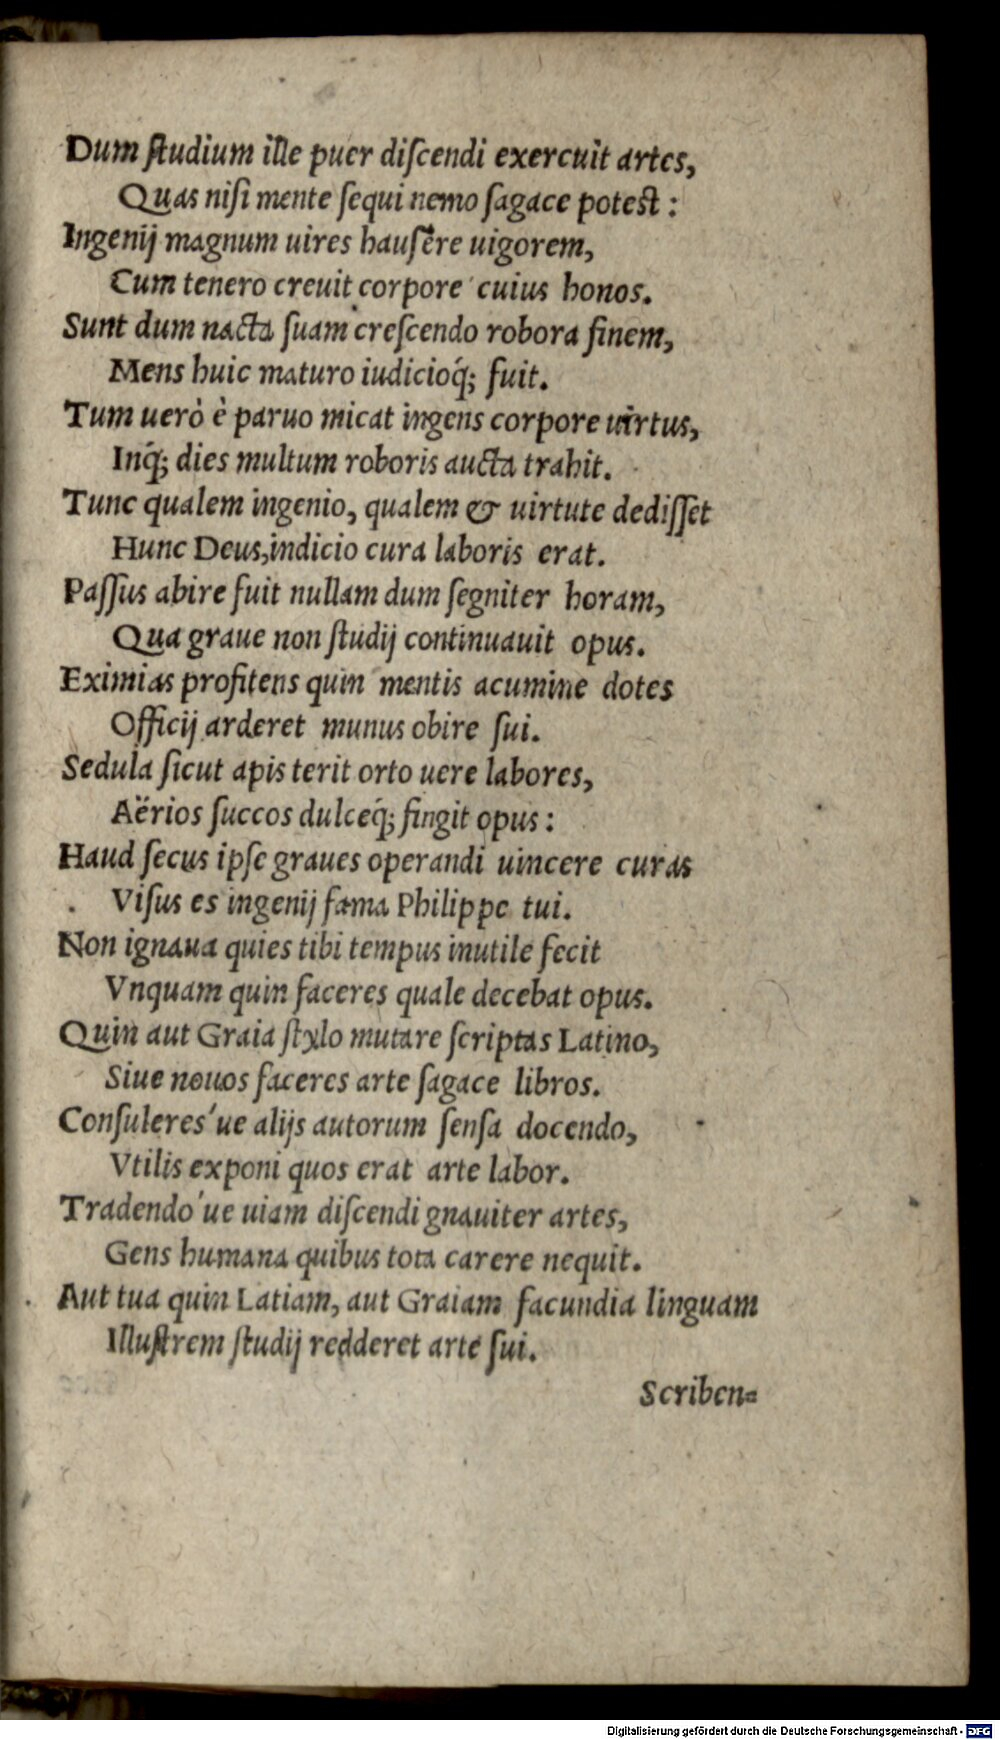 Dum ſtudium ille puer diſcendi exercuit artes,
Quas niſi mente ſequi nemo ſagace poteſt :
Ingenij magnum uires hauſêre uigorem,
Cum tenero creuit corpore cuius honos.
Sunt dum nacta ſuam creſcendo robora finem,
Mens huic maturo iudicioq́; fuit.
Tum uerò è paruo micat ingens corpore uirtus,
Inq́; dies multum roboris aucta trahit.
Tunc qualem ingenio, qualem & uirtute dediſſet
Hunc Deus, indicio cura laboris erat.
Paſſus abire fuit nullam dum ſegniter horam,
Qua graue non ſtudij continuauit opus.
Eximias profitens quin mentis acumine dotes
Officij arderet munus obire ſui.
Sedula ſicut apis terit orto uere labores,
Aërios ſuccos dulceq́; fingit opus :
Haud ſecus ipſe graues operandi uincere curas
Viſus es ingenij fama Philippe tui.
Non ignaua quies tibi tempus inutile fecit
Vnquam quin faceres quale decebat opus.
Quin aut Graia ſtylo mutare ſcriptas Latino,
Siue nouos faceres arte ſagace libros.
Conſuleres'ue alijs autorum ſenſa docendo,
Vtilis exponi quos erat arte labor.
Tradendo'ue uiam diſcendi gnauiter artes,
Gens humana quibus tota carere nequit.
Aut tua quin Latiam, aut Graiam facundia linguam
Illuſtrem ſtudij redderet arte ſui.
Scriben=
Digitalisierung gefördert durch die Deutsche Forschungsgemeinschaft - DFG